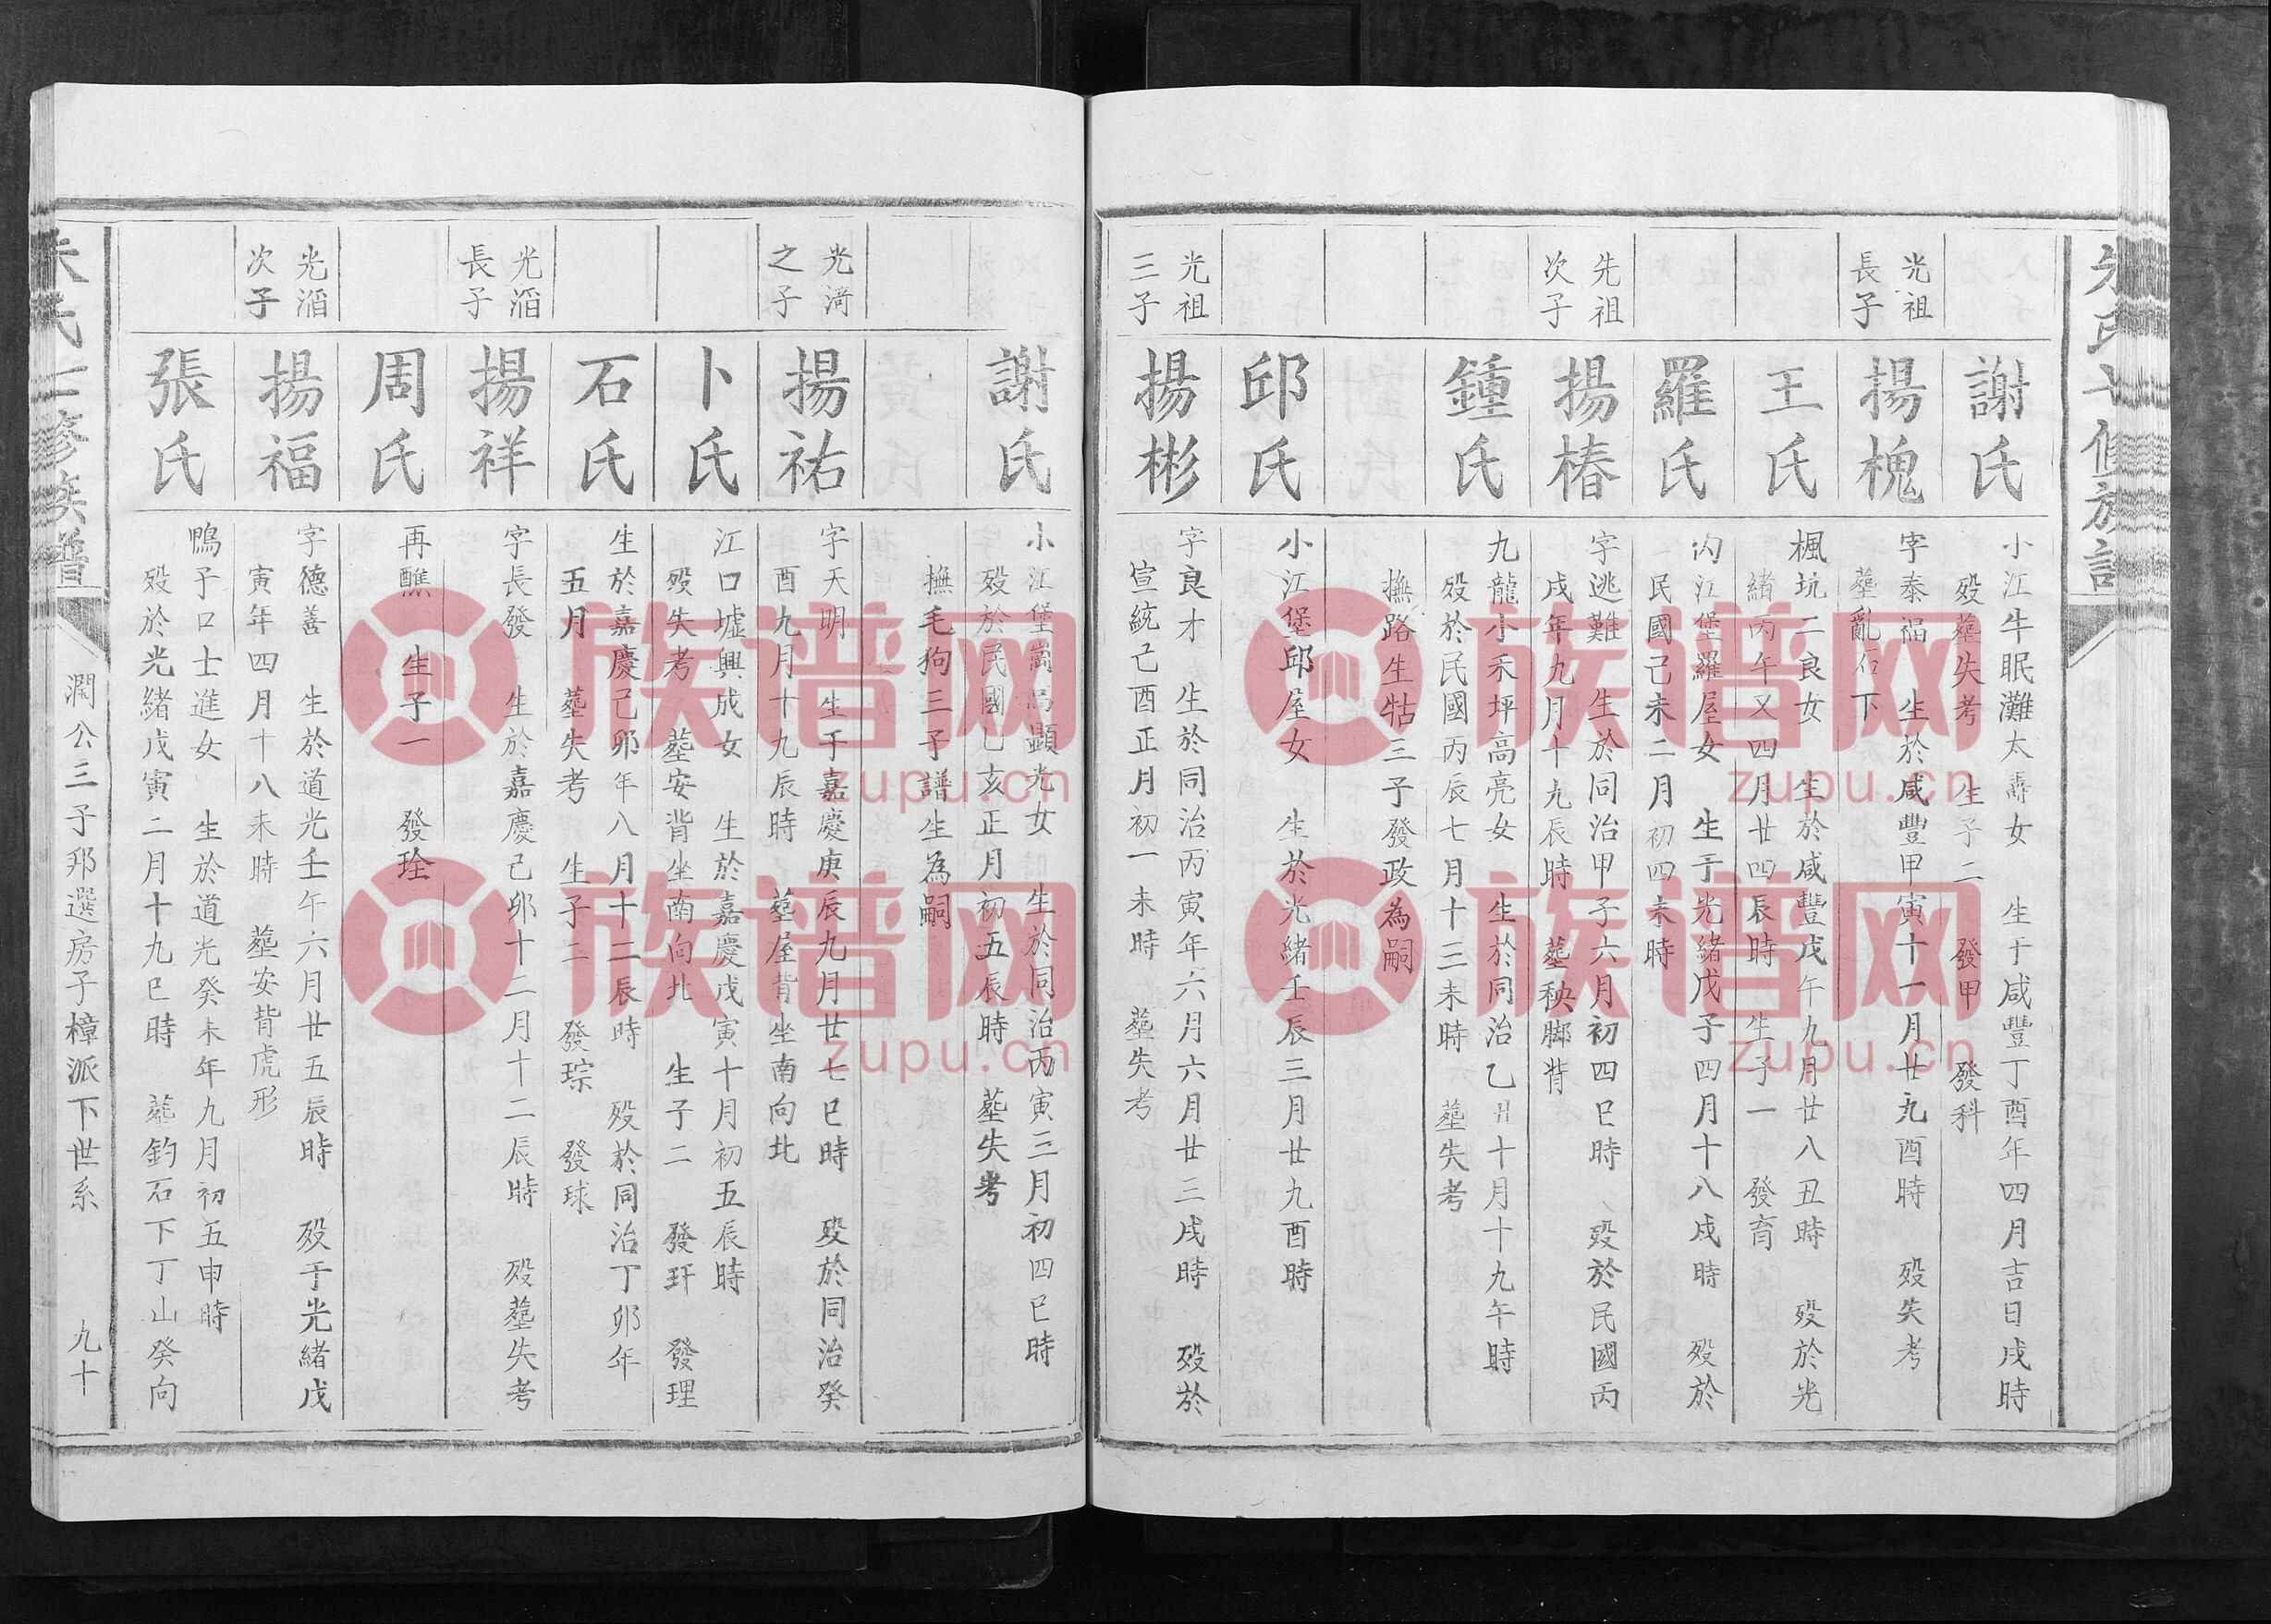 朱氏七修族譜
謝氏
小江牛眠灘太壽女　生于咸豐丁酉年四月吉日戌時
殁塟失考　生子二　發甲　發科
光祖
長子
揚槐
字泰福　生於咸豐甲寅十一月廿九酉時　殁失考
塟亂石下
王氏
楓坑二良女　生於咸豐戊午年九月廿八丑時　殁於光
緒丙午又四月廿四辰時　生子一　發育
羅氏
內江堡羅屋女　生于光緒戊子四月十八戌時　殁於
民國己未二月初四未時
先祖
次子
揚椿
字逃難　生於同治甲子六月初四巳時　殁於民國丙
戌年九月十九辰時　塟秧脚背
鍾氏
九龍小禾坪高亮女　生於同治乙丑十月十九午時
殁於民國丙辰七月十三未時　塟失考
撫路生牯三子發政為嗣
邱氏
小江堡邱屋女　生於光緒壬辰三月廿九酉時
光祖
三子
揚彬
字良才　生於同治丙寅年六月六月廿三戌時　殁於
宣統己酉正月初一未時　塟失考
謝氏
小江堡崗馮顯光女　生於同治丙寅三月初四巳時
殁於民國乚亥正月初五辰時　塟失考
撫毛狗三子譜生為嗣
光渏
之子
揚祐
字天明　生于嘉慶庚辰九月廿七巳時　殁於同治癸
酉九月十九辰時　塟屋背坐南向北
卜氏
江口墟興成女　生於嘉慶戊寅十月初五辰時
殁失考　塟安背坐南向北　生子二　發玕　發理
石氏
生於嘉慶己卯年八月十二辰時　殁於同治丁卯年
五月　塟失考　生子二　發琮　發球
光滔
長子
揚祥
字長發　生於嘉慶己卯十二月十二辰時　殁塟失考
周氏
再醮　生子一　發琻
光滔
次子
揚福
字德善　生於道光壬午六月廿五辰時　殁于光緒戊
寅年四月十八未時　塟安背虎形
張氏
鴨子口士進女　生於道光癸未年九月初五申時
殁於光緒戊寅二月十九巳時　塟釣石下丁山癸向
朱氏七修族譜
澗公三子邦選房子樟派下世系　九十
族谱网
zupu.cn
族谱网
zupu.cn
族谱网
zupu.cn
族谱网
zupu.cn